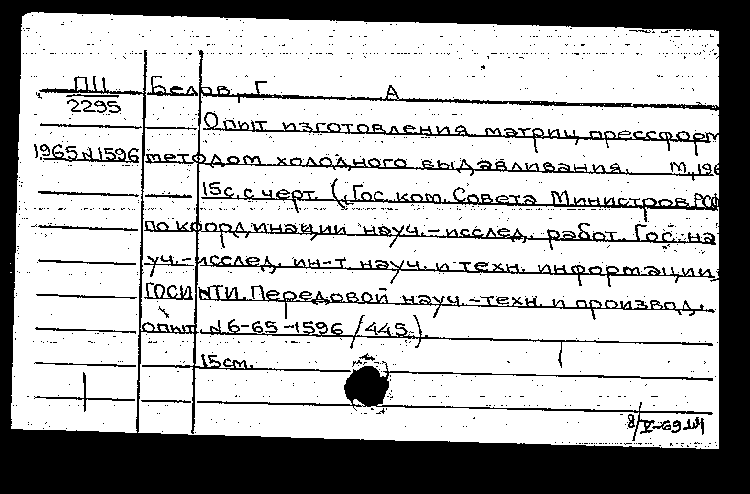 ПЦ Белов, Г А
2295
Опыт изготовления матриц прессформ
1965 №1596 методом холодного выдавливания. М, 196
15с. с черт. (Гос. ком. Совета Министров РСФ
по координации науч.-исслед. работ. Гос. на
уч.-исслед. ин-т науч. и техн. информации
ГОСИНТИ. Передовой науч.-техн. и производ.
опыт. №6-65-1596/445).
15см.
8/V-69